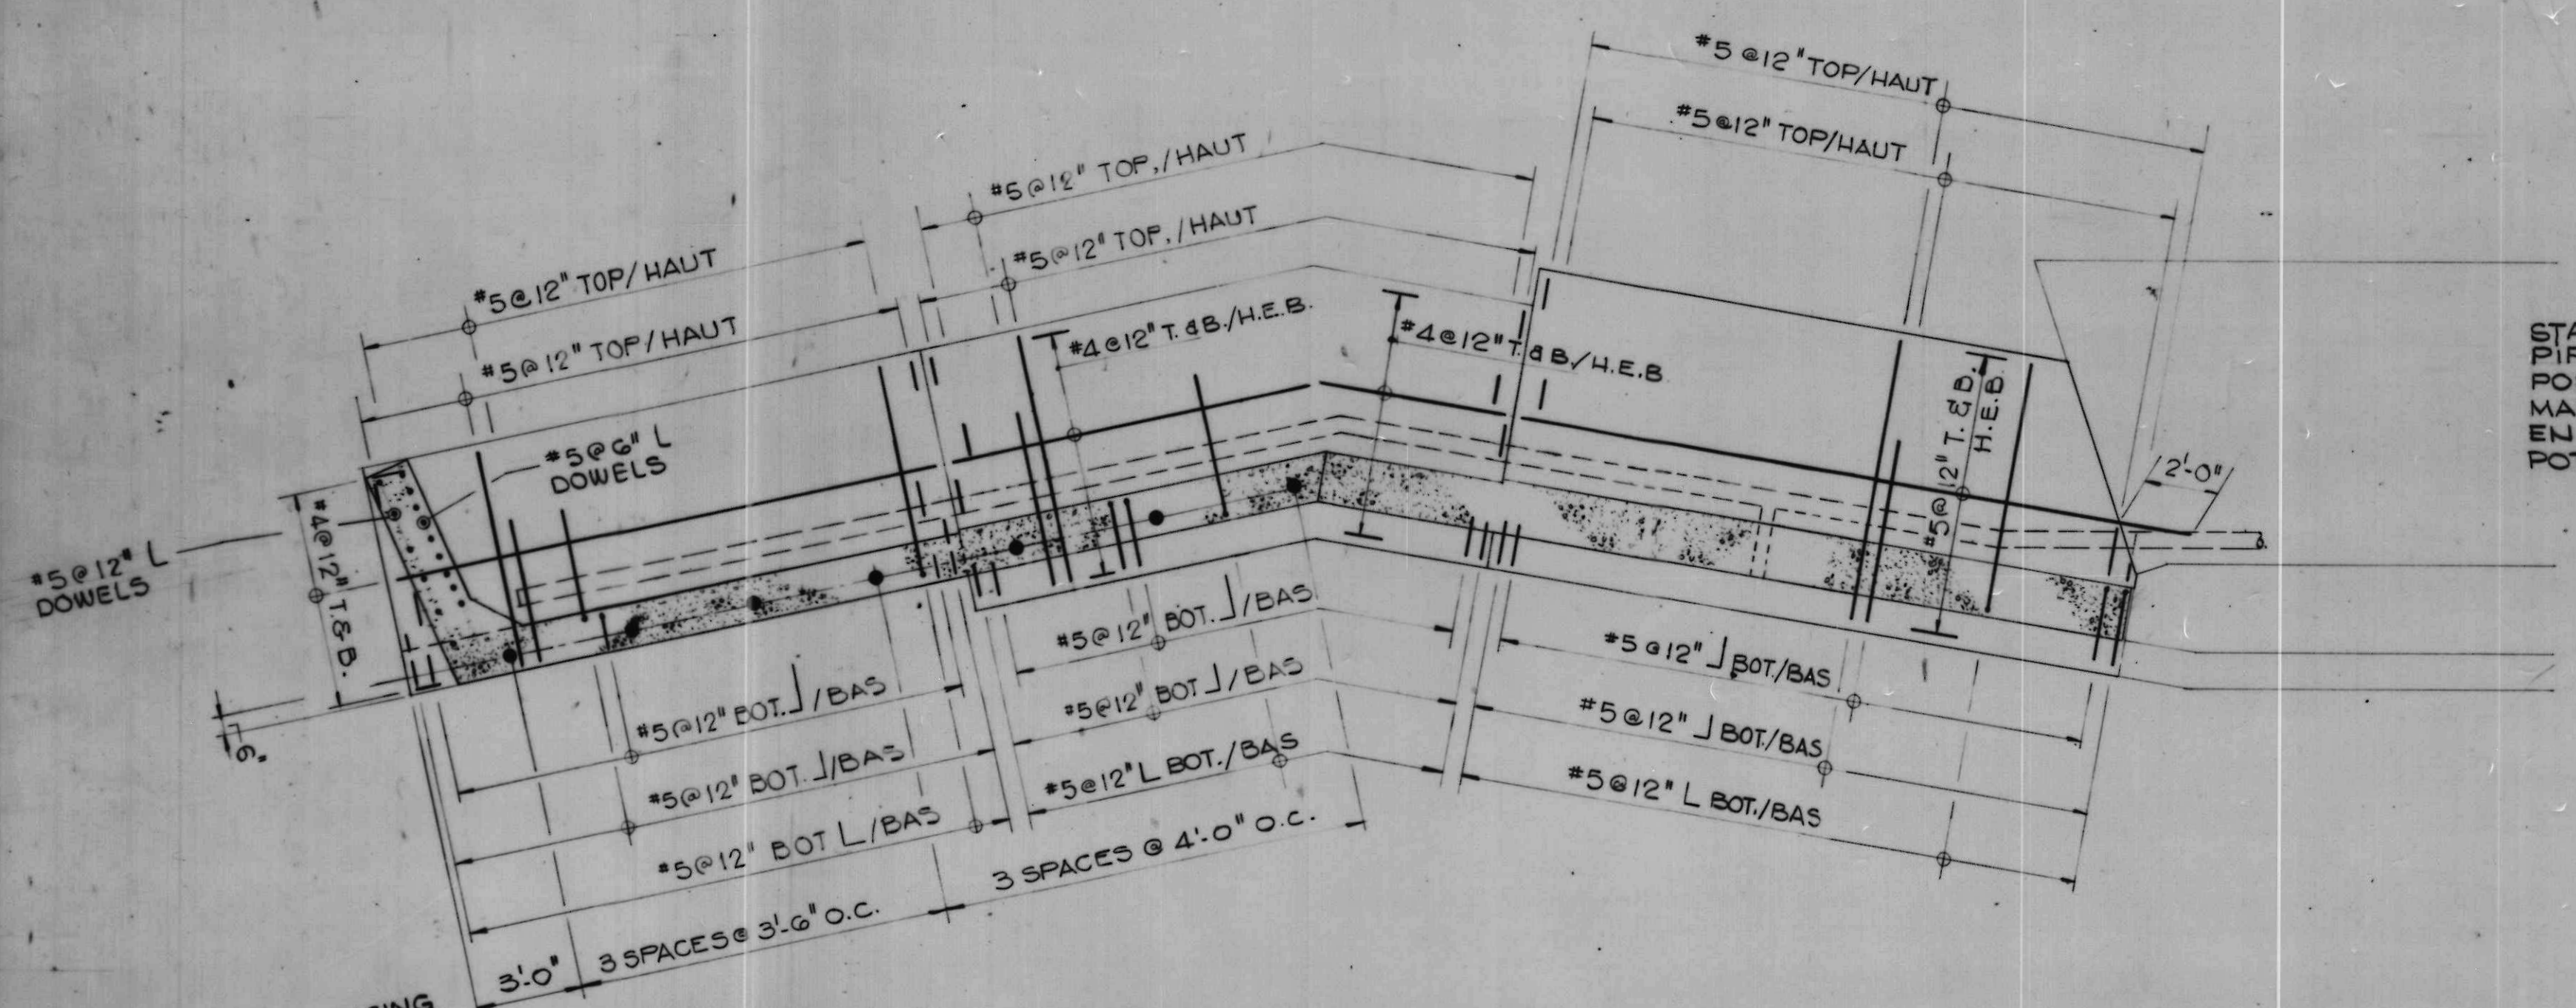 #5@12" TOP/HAUT
#5@12" TOP/HAUT
#5@12" TOP./HAUT
#5@12" TOP./HAUT
#5@12" TOP/HAUT
#5@12" TOP/HAUT
#4@12" T.&B./H.E.B.
#4@12" T.&B./H.E.B
#5@12" T.&B.
H.E.B.
2'-0"
#5@6" L
DOWELS
#5@12" L
DOWELS
#4@12" T.&B.
6"
STA
PO
MA
EN
PO
#5@12" BOT.⅃/BAS
#5@12" BOT.⅃/BAS
#5@12" BOT L/BAS
#5@12" BOT.⅃/BAS
#5@12" BOT⅃/BAS
#5@12" L BOT./BAS
#5@12" ⅃ BOT./BAS
#5@12" ⅃ BOT./BAS
#5@12" L BOT./BAS
3'-0"
3 SPACES @ 3'-6" O.C.
3 SPACES @ 4'-0" O.C.